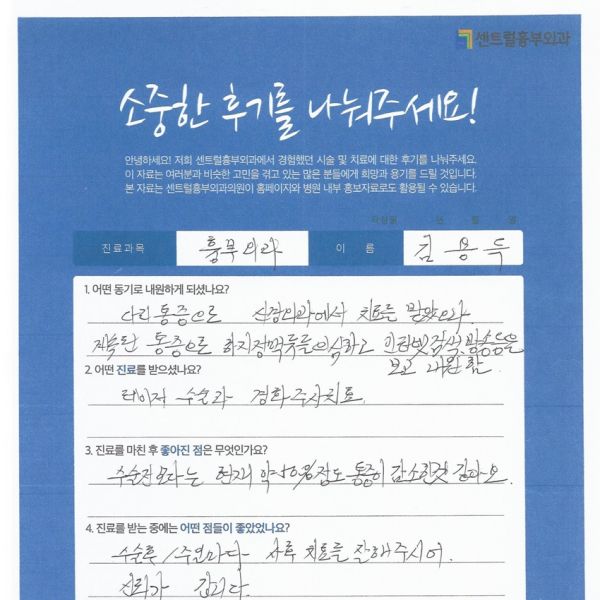 센트럴흉부외과
소중한 후기를 나눠주세요!
안녕하세요! 저희 센트럴흉부외과에서 경험했던 시술 및 치료에 대한 후기를 나눠주세요.
이 자료는 여러분과 비슷한 고민을 겪고 있는 많은 분들에게 희망과 용기를 드릴 것입니다.
본 자료는 센트럴흉부외과의원이 홈페이지와 병원 내부 홍보자료로도 활용될 수 있습니다.
작성일 년 월 일
진료과목 흉부외과 이 름 김용득
1. 어떤 동기로 내원하게 되셨나요?
다리통증으로 신경외과에서 치료를 받았으나.
계속된 통증으로 하지정맥류를 의심하고 인터넷검색, 방송등을
보고 내원함.
2. 어떤 진료를 받으셨나요?
레이저 수술과 경화주사치료.
3. 진료를 마친 후 좋아진 점은 무엇인가요?
수술전보다는 현재 약 정도 통증이 감소된것 같아요.
4. 진료를 받는 중에는 어떤 점들이 좋았었나요?
수술후 1주일마다 사후 치료를 잘해주시어.
신뢰가 갑니다.